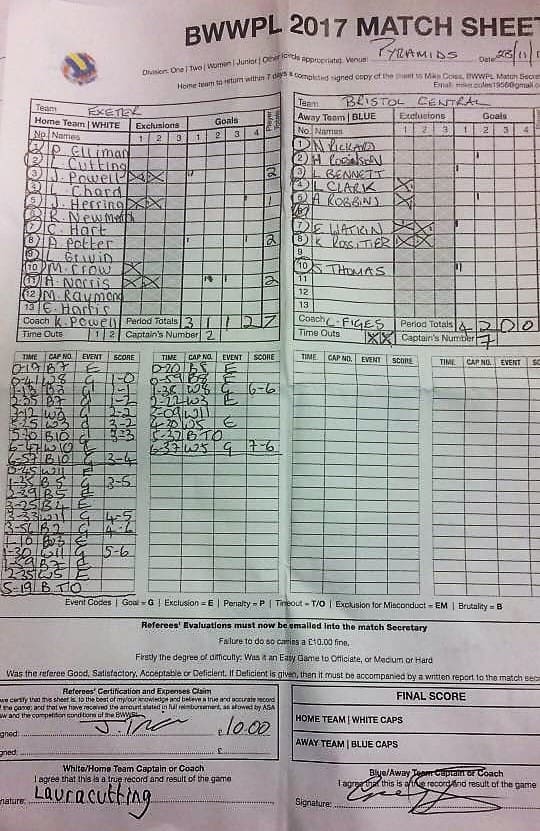 BWWPL 2017 MATCH SHEET
Division: One | Two | Women | Junior | Other (circle appropriate). Venue: PYRAMIDS Date 
Home team to return within 7 days a completed signed copy of the sheet to Mike Coles, BWWPL Match Secre
Email: mike.coles1956@gmail.c
Team EXETER
Home Team | WHITE Exclusions Goals
No. Names 1 2 3 1 2 3 4
1 P Elliman
2 L Cutting
3 J. Powell X X 2
4 L. Chard
5 J. Herring X X 1
6 R. Newman
7 C. Hart
8 A. Potter 2
9 L. Girvin
10 M. Crow X
11 A. Norris X X 2
12 M. Raymond
13 E. Harris
Coach K. Powell Period Totals 3 1 1 2 7
Time Outs 1 2 Captain's Number 2
Team BRISTOL CENTRAL
Away Team | BLUE Exclusions Goals
No. Names 1 2 3 1 2 3
1 N RICKARD
2 H ROBINSON
3 L BENNETT
4 L CLARK X
5 A ROBBINS X
6
7 E WATKIN X X
8 K ROSSITIER X X
9
10 S THOMAS
11
12
13
Coach C. FIGES Period Totals 4 2 0 0
Time Outs X X Captain's Number 7
TIME CAP NO. EVENT SCORE
0-19 B7 E
0-41 W8 G 1-0
1-13 B3 G 1-1
2-35 B7 G 1-2
3-12 W3 G 2-2
5-25 W3 G 3-2
B10 G 3-3
6-47 W10 E
6-57 B10 G 3-4
0-45 W11 E
1-35 B5 G 3-5
2-39 B5 E
3-25 B4 E
3-33 W11 G 4-5
3-56 B2 G 4-6
1-10 W3 E
1-30 W11 G 5-6
1-59 B7 E
2-35 W5 E
5-19 B T/O
TIME CAP NO. EVENT SCORE
0-20 B8 E
0-59 B8 E
1-38 W8 G 6-6
2-22 W3 E
2-09 W11
4-30 W5 E
5-32 B TO
6-37 W5 G 7-6
TIME CAP NO. EVENT SCORE
TIME CAP NO. EVENT
Event Codes | Goal = G | Exclusion = E | Penalty = P | Timeout = T/O | Exclusion for Misconduct = EM | Brutality = B
Referees' Evaluations must now be emailed into the match Secretary
Failure to do so carries a £10.00 fine.
Firstly the degree of difficulty: Was it an Easy Game to Officiate, or Medium or Hard
Was the referee Good, Satisfactory, Acceptable or Deficient. If Deficient is given, then it must be accompanied by a written report to the match sec
Referees' Certification and Expenses Claim
we certify that this sheet is, to the best of my/our knowledge and believe a true and accurate record
of the game; and that we have received the amount stated in full reimbursement, as allowed by ASA
aw and the competition conditions of the BWWPL
gned: £10.00
gned: £
FINAL SCORE
HOME TEAM | WHITE CAPS
AWAY TEAM | BLUE CAPS
White/Home Team Captain or Coach
I agree that this is a true record and result of the game
nature: Lauracutting
Blue/Away Team Captain or Coach
I agree that this is a true record and result of the game
Signature: